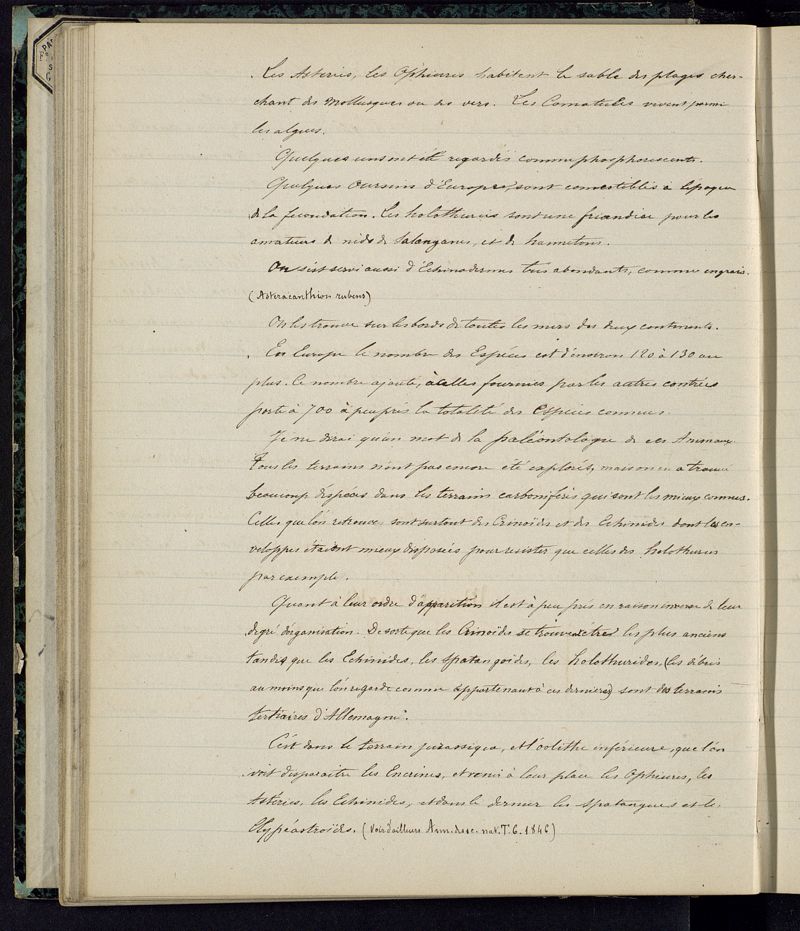 Les Astéries, les Ophiures habitent le sable des plages cher-
chant des Mollusques ou des vers. Les Comatules vivent parmi
les algues.
Quelques uns ont été regardés comme phosphorescents.
Quelques Oursins d'Europe, sont comestibles à l'époque
de la fecondation. Les holothuries sont une friandise pour les
amateurs de nids de Salanganes, et de hannetons.
On s'est servi aussi d'Echinodermes très abondants, comme engrais.
(Asteracanthion rubens)
On les trouve sur les bords de toutes les mers des deux continents.
En Europe le nombre des Espèces est d'environ 120 à 130 au
plus. Ce nombre ajouté, à celles fournies par les autres contrées
porte à 700 à peu près la totalité des Espèces connues.
Je ne dirai qu'un mot de la paléontologie de ces Animaux.
Tous les terrains n'ont pas encore été explorés, mais on en a trouvé
beaucoup d'espèces dans les terrains carbonifères qui sont les mieux connus.
Celles que l'on retrouve, sont surtout des Crinoïdes et des Echinides dont les en-
veloppes étaient mieux disposées pour resister que celles des holothuries
par exemple.
Quant à leur ordre d'apparition il est à peu près en raison inverse de leur
degré d'organisation. De sorte que les Crinoïdes se trouve être les plus anciens
tandis que les Echinides, les Spatangoïdes, les holothurides, (les débris
au moins que l'on regarde comme appartenant à ces dernières) sont des terrains
tertiaires d'Allemagne.
C'est dans le terrain jurassique, et l'oolithe inférieure, que l'on
voit disparaitre les Encrines, et venir à leur place les Ophiures, les
Astéries, les Echinides, et dans le dernier les Spatangues et les
Clypéastroïdes. (Voir d'ailleurs Ann. des sc. nat. T. 6. 1846)